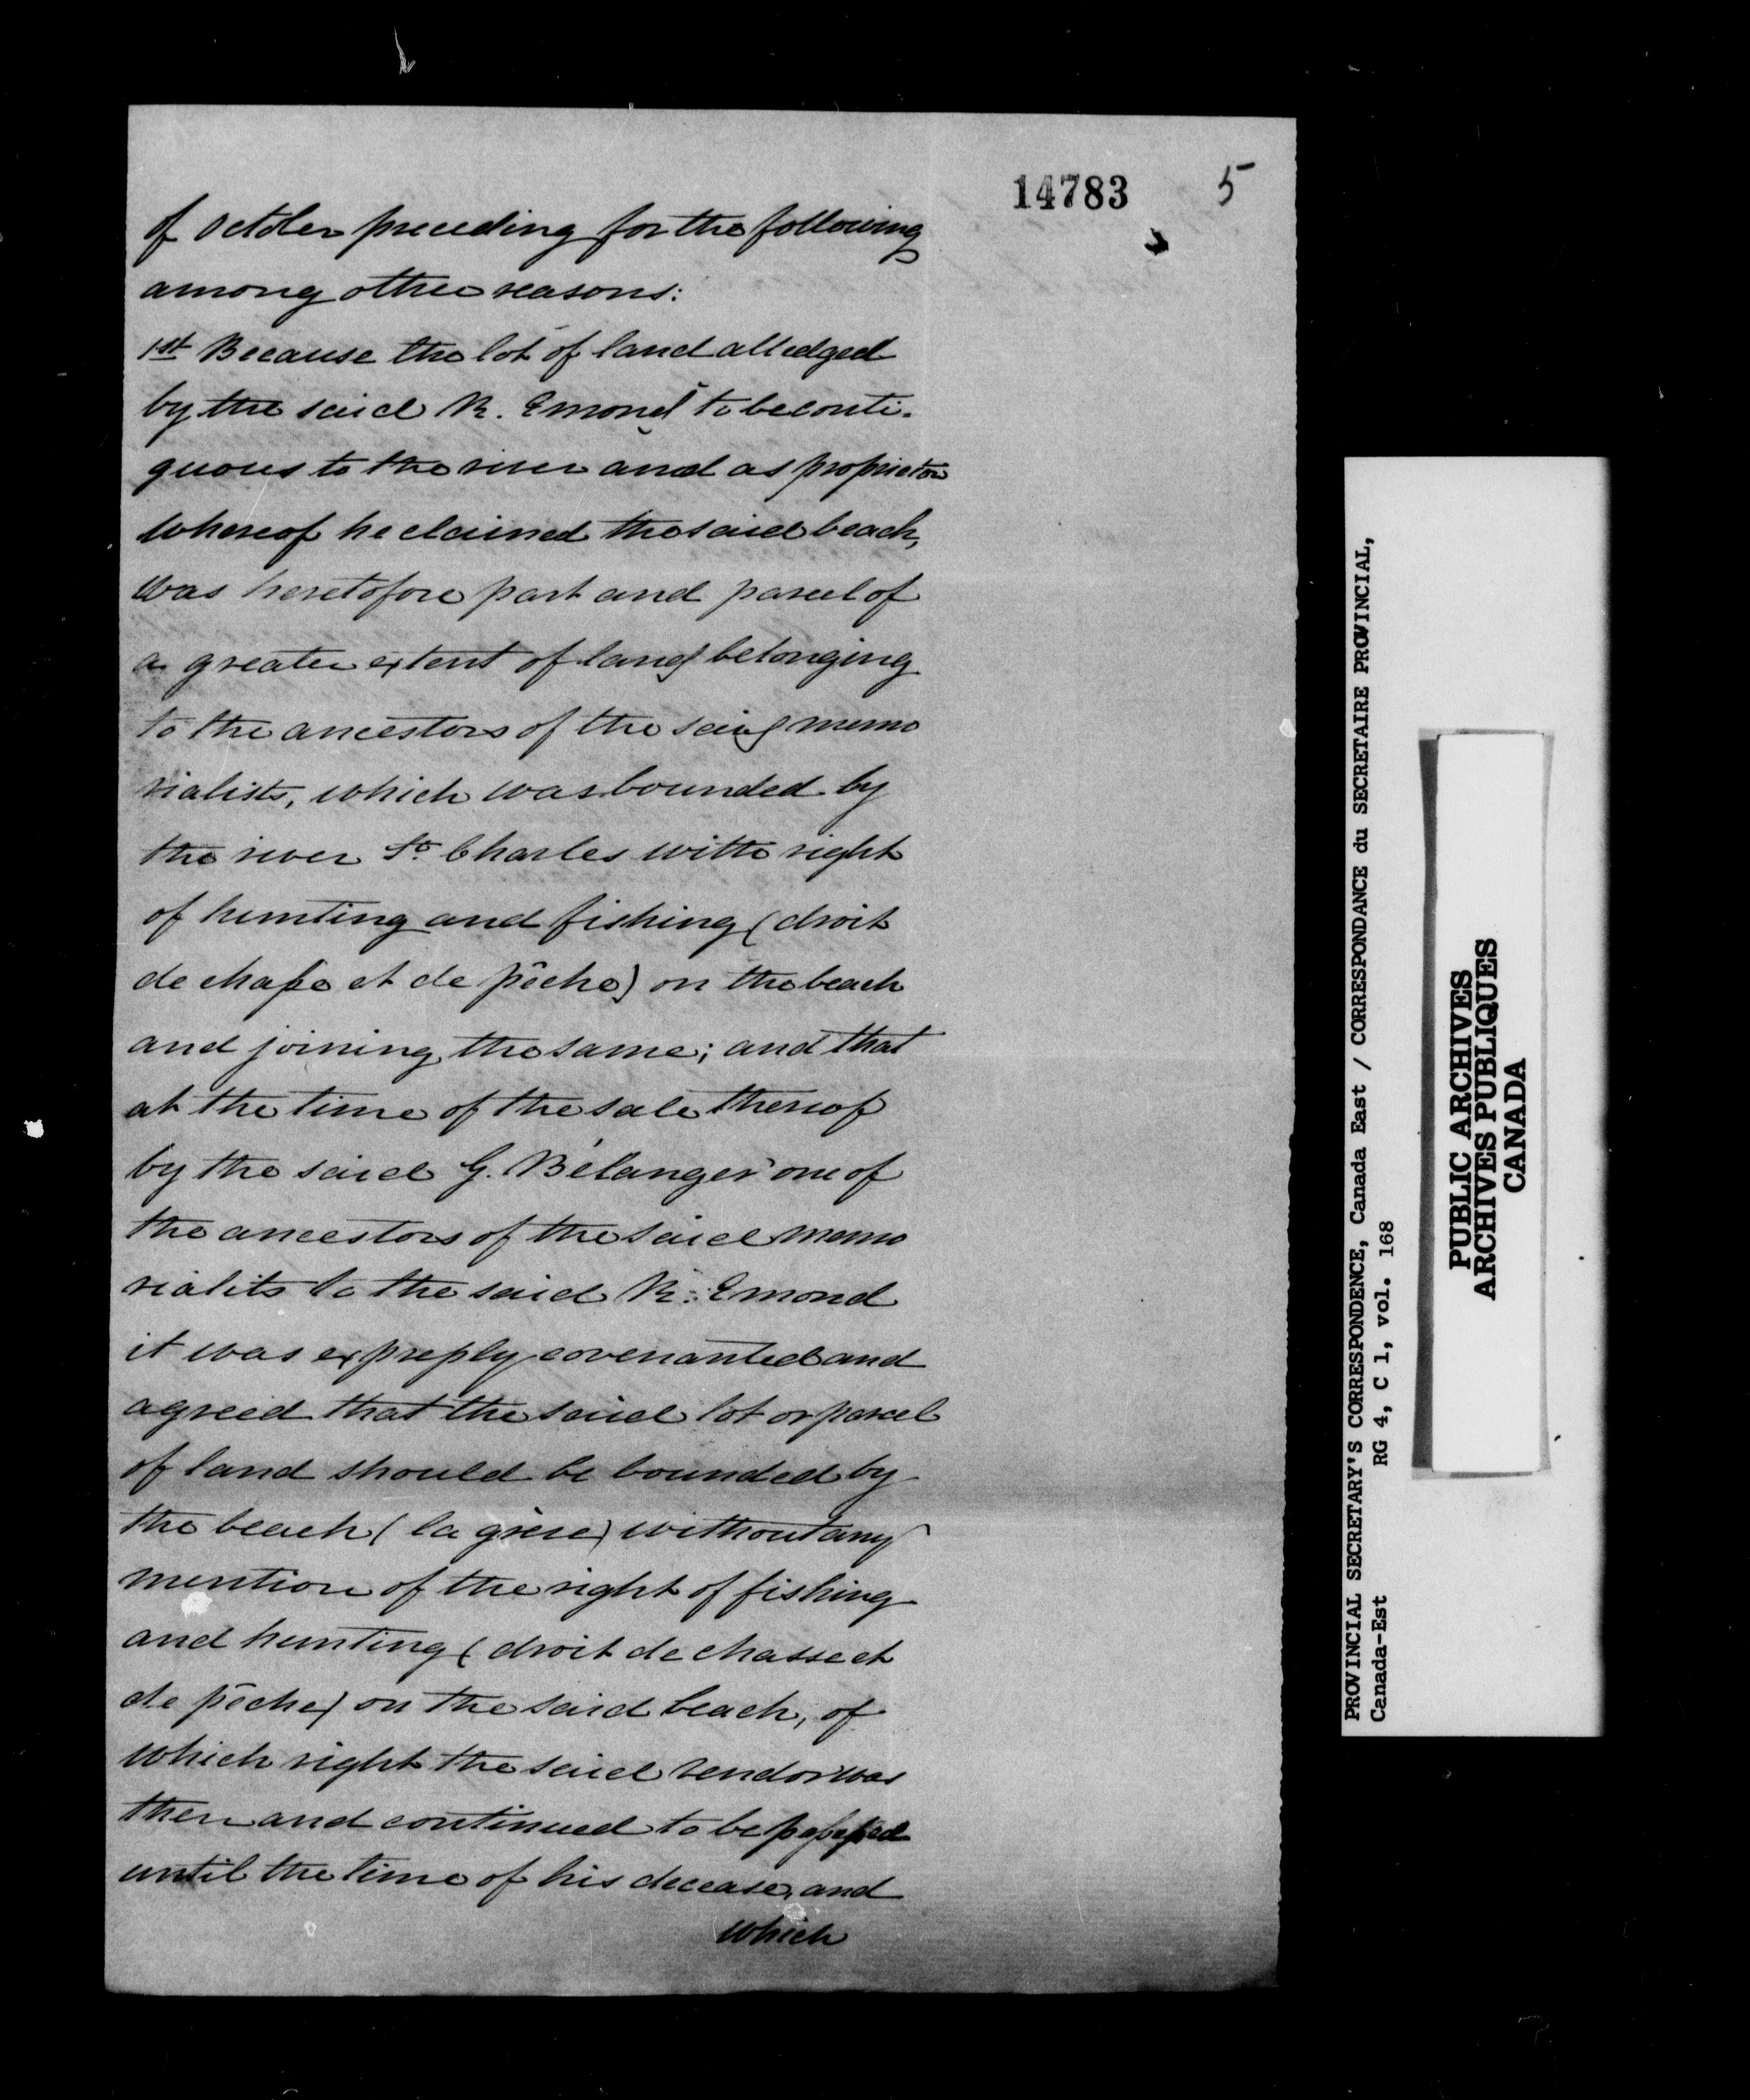 14783 5
of October preceding for the following
among other reasons:
1st Because the lot of land alledged
by the said R. Emond to be conti-
guous to the river and as proprietor
whereof he claimed the said beach,
was heretofore part and parcel of
a greater extent of land belonging
to the ancestors of the said memo
rialists, which was bounded by
the river St. Charles with right
of hunting and fishing (droit
de chasse et de pêche) on the beach
and joining the same; and that
at the time of the sale thereof
by the said G. Bélanger one of
the ancestors of the said memo
rialits to the said R. Emond
it was expressly covenanted and
agreed that the said lot or parcel
of land should be bounded by
the beach (la grève) without any
mention of the right of fishing
and hunting (droit de chasse et
de pêche) on the said beach, of
which right the said vendor was
then and continued to be possessed
until the time of his decease, and
which
PROVINCIAL SECRETARY'S CORRESPONDENCE, Canada East / CORRESPONDANCE du SECRETAIRE PROVINCIAL,
Canada-Est RG 4, C 1, vol. 168
PUBLIC ARCHIVES
ARCHIVES PUBLIQUES
CANADA